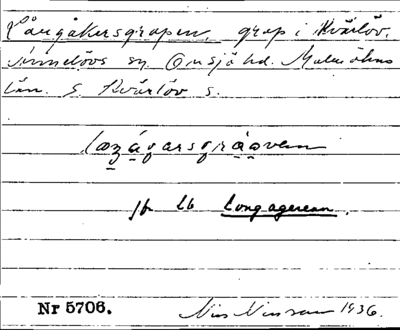 Långåkersgropen, grop i Kvärlöv,
Annelövs sn Onsjö hd. Malmöhus
län. S Kvärlöv s.
jfr Lb Longageren.
Nr 5706. Nils Nilsson 1936.